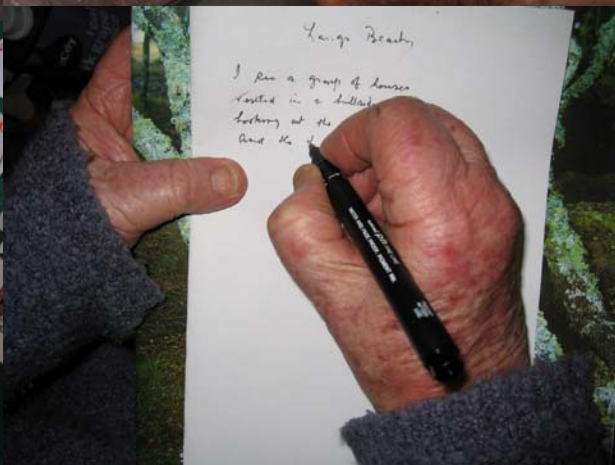 Langs Beach
I see a group of houses
nestled in a hillside
looking at the
and the